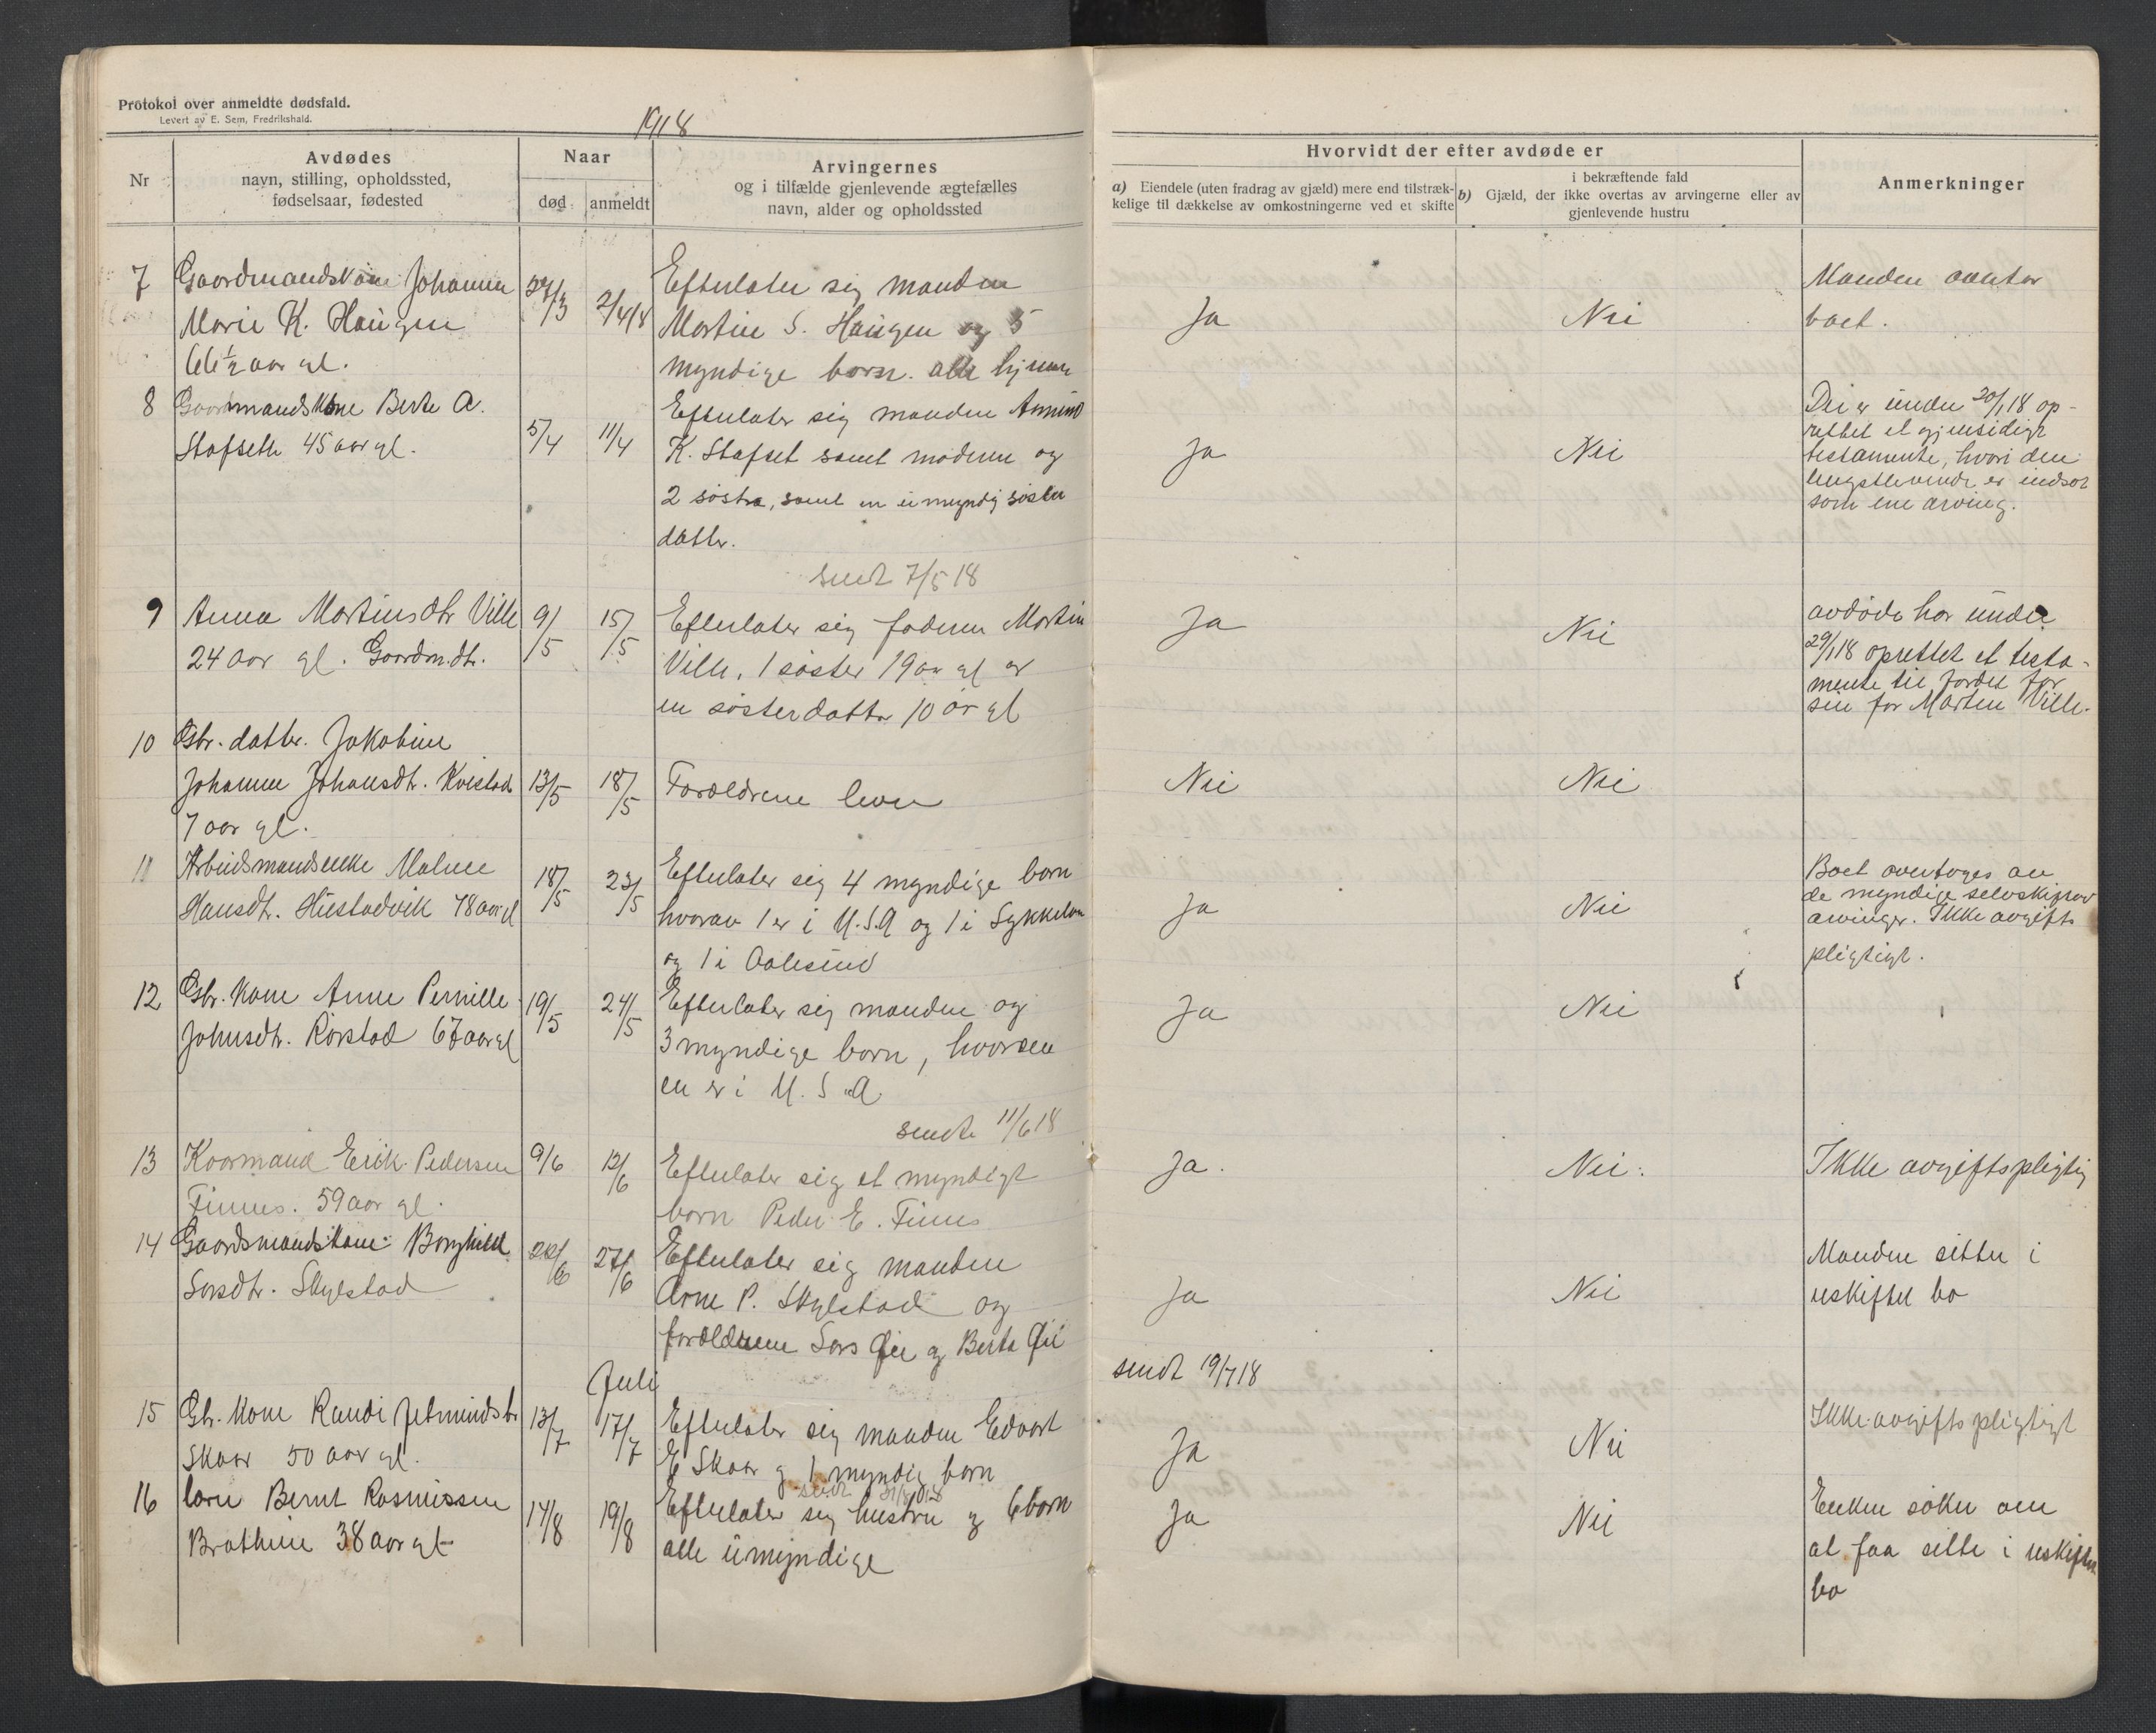 Protokol over anmeldte dødsfald.
Levert av E. Sem, Fredrikshald.
1918
Nr
Avdødes
navn, stilling, opholdssted,
fødselsaar, fødested
Naar
død
anmeldt
Arvingernes
og i tilfælde gjenlevende ægtefælles
navn, alder og opholdssted
Hvorvidt der efter avdøde er
a) Eiendele (uten fradrag av gjæld) mere end tilstræk-
kelige til dækkelse av omkostningerne ved et skifte
i bekræftende fald
b) Gjæld, der ikke overtas av arvingerne eller av
gjenlevende hustru
Anmerkninger
7
Gaardmandskone Johanne
Marie K. Haugen
66½ aar gl.
27/3
2/4 18
Efterlater sig manden
Martin S. Haugen og 5
myndige børn. alle hjemme
Ja
Nei
Manden overtar
boet.
8
Gaardmandskone Berte A.
Stafseth 45 aar gl.
5/4
11/4
Efterlater sig manden Amund
K. Stafset samt moderen og
2 søstre, samt en umyndig søster
datter.
Ja
Nei
Dei er under 20/1 18 op-
rettet et gjensidigt
testamente, hvori den
lengstlevende er indsat
som ene arving.
sendt 7/5 18
9
Anna Martinsdtr Ville
24 aar gl. Gaardm.dtr.
9/5
15/5
Efterlater sig faderen Martin
Ville, 1 søster 19 aar gl og
en søsterdatter 10 år gl
Ja
Nei
avdøde har under
29/1 18 oprettet et testa-
mente til fordel for
sin far Martin Ville.
10
Gbr. datter. Jakobine
Johanne Johansdt. Kvistad
7 aar gl.
13/5
18/5
Forældrene lever
Nei
Nei
11
Arbeidsmandsenke Malene
Hansdt. Hustadvik 78 aar gl
18/5
23/5
Efterlater sig 4 myndige børn
hvorav 1 er i U.S.A og 1 i Sykkelven
og 1 i Aalesund
Ja
Nei
Boet overtages av
de myndige selvskiftende
arvinger. Ikke avgifts
pligtigt.
12
Gbr. kone Anne Pernille
Johnsdt. Rørstad 67 aar gl
19/5
24/5
Efterlater sig manden og
3 myndige børn, hvorav
en er i U.S.A
Ja
Nei
sendt 11/6 18
13
Kaarmand Erik Pedersen
Finnes. 59 aar gl.
9/6
12/6
Efterlater sig et myndigt
barn Peder E. Finnes
Ja.
Nei.
Ikke avgiftspligtig
14
Gaardsmandskone Borghild
Larsdtr. Skylstad
27/6
Efterlater sig manden
Arne P. Skylstad og
forældrene Lars Øie og Berta Øie
Ja
Nei
Manden sitter i
uskiftet bo
Juli
sendt 19/7 18
15
Gbr. kone Randi Jetmundsdtr
Skaar 50 aar gl.
13/7
17/7
Efterlater sig manden Edvart
E Skaar og 1 myndig barn
Ja
Nei
Ikke avgiftspligtigt
sendt
16
Bernt Rasmussen
Bratheim 38 aar gl
14/8
19/8
Efterlater sig hustru og 6 børn
alle umyndige
Ja
Nei
Enken søker om
at faa sitte i uskiftet
bo